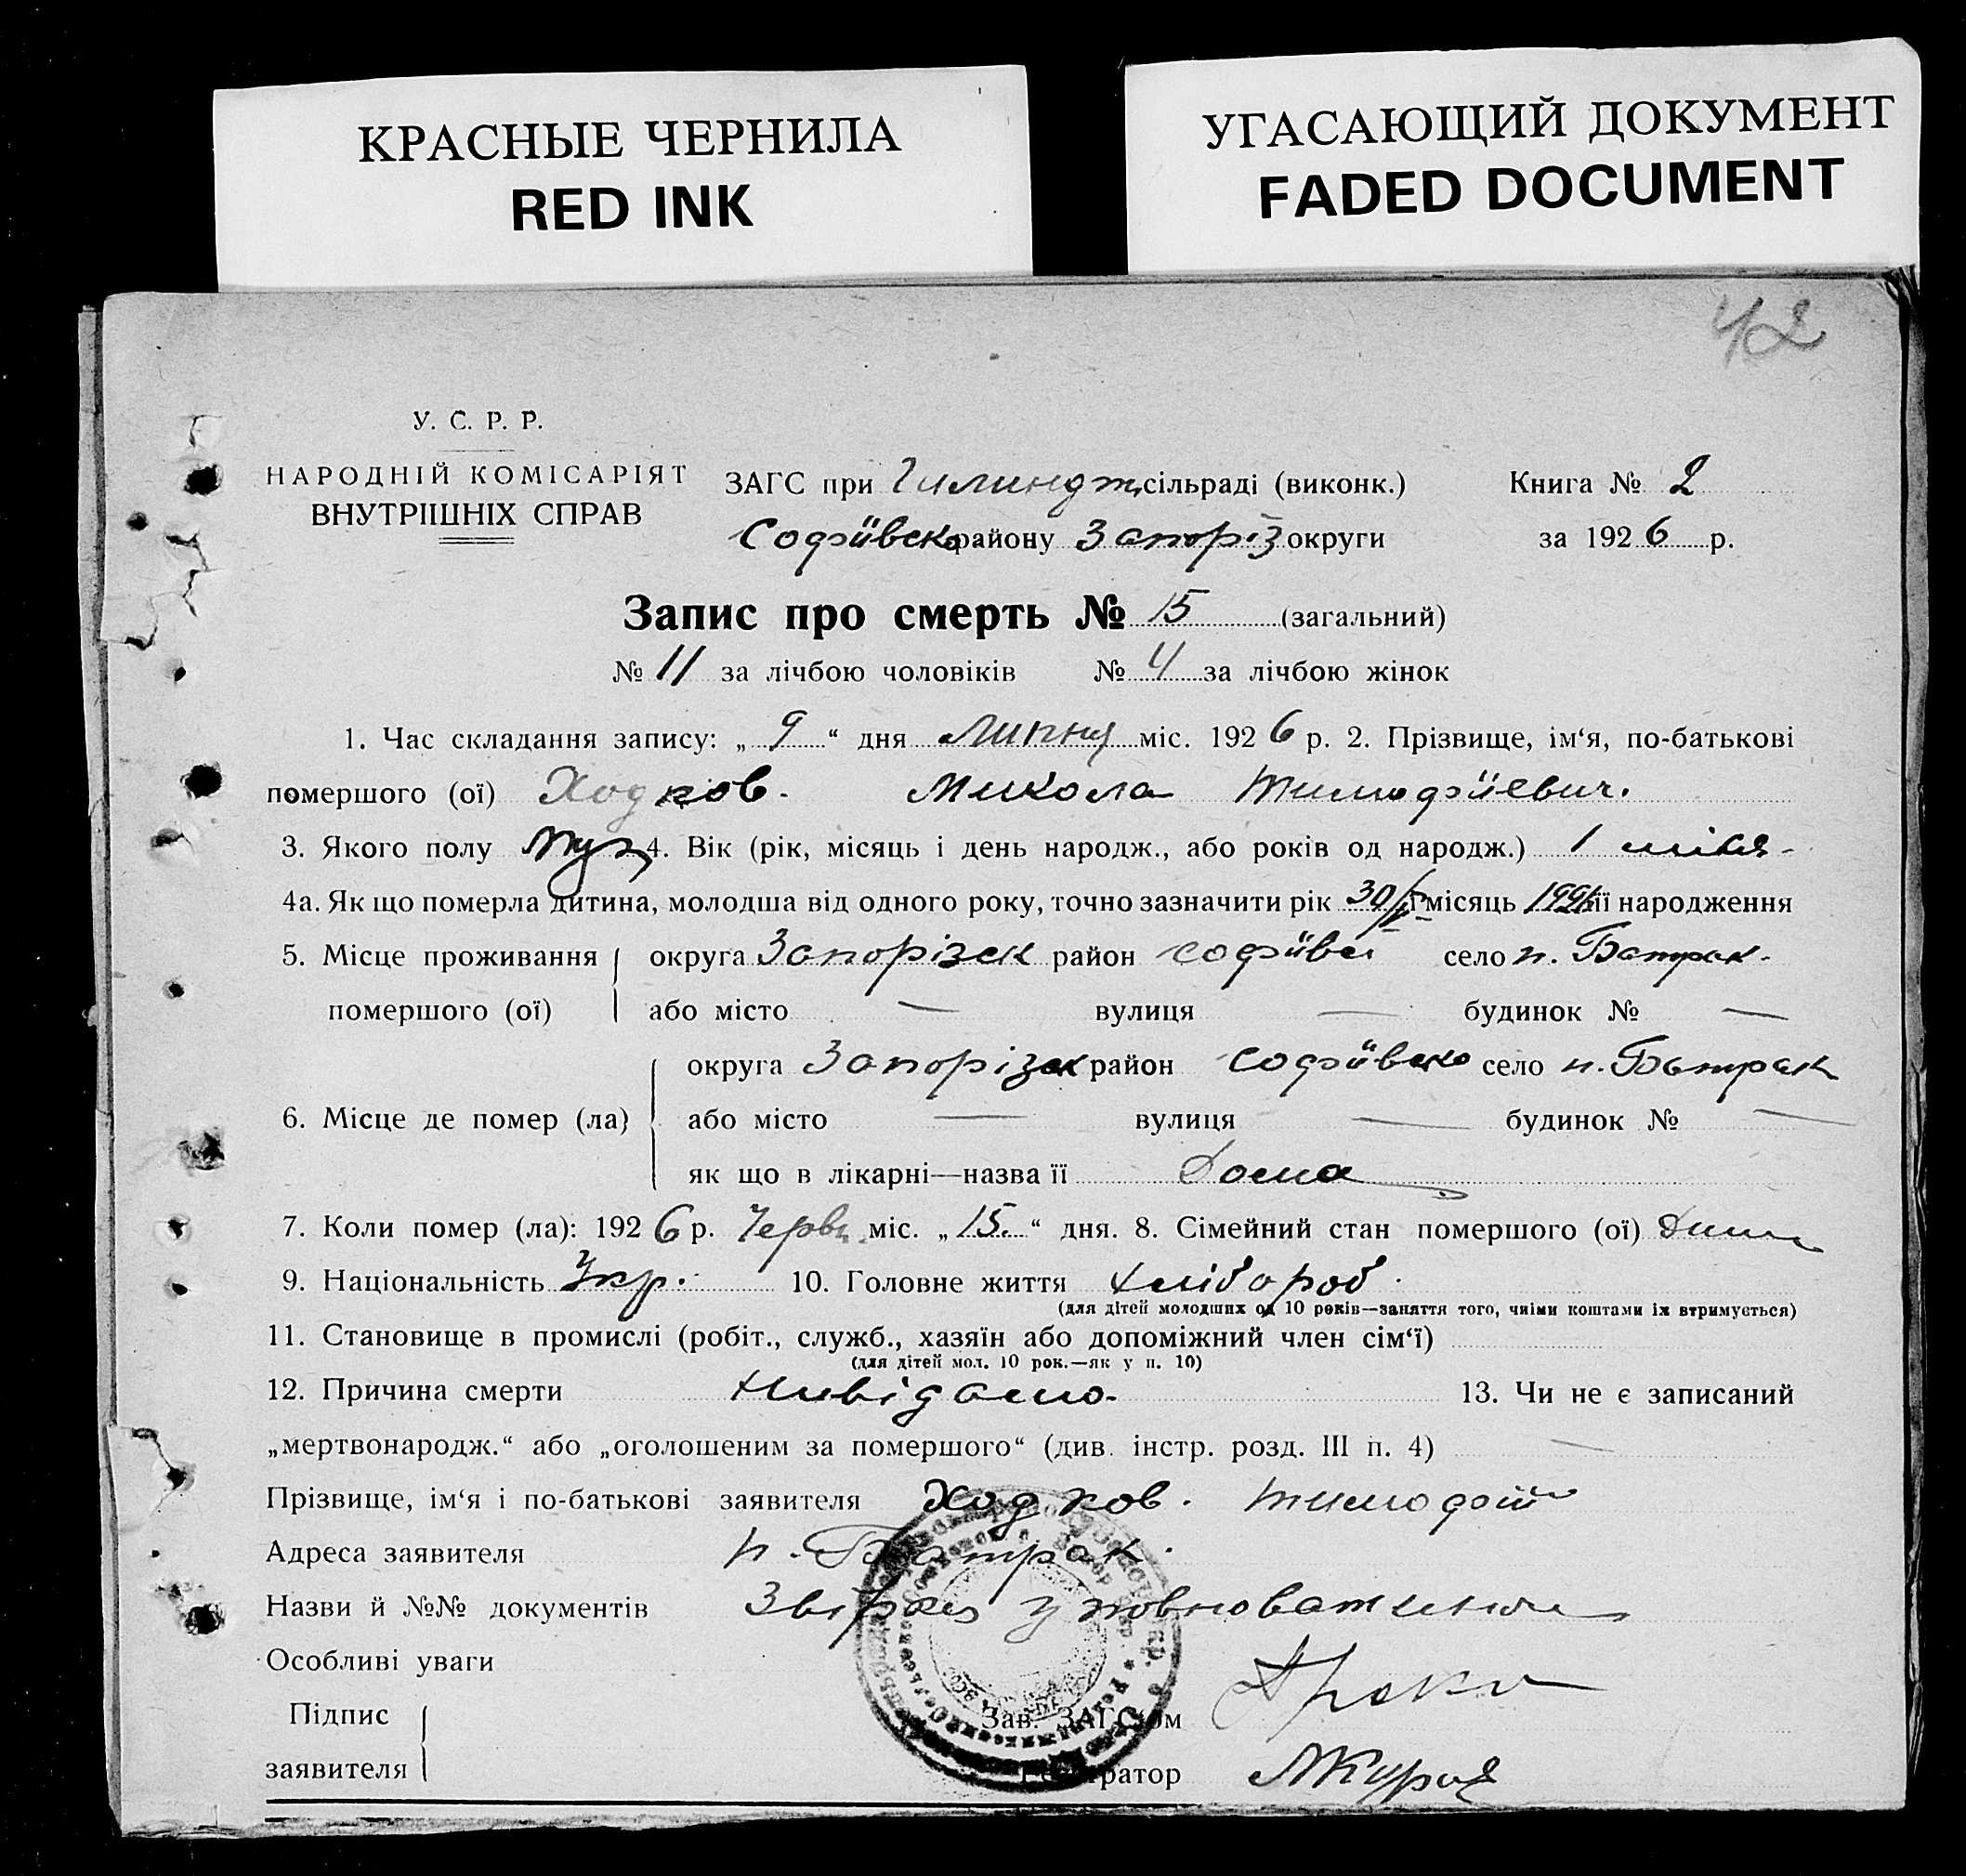 КРАСНЫЕ ЧЕРНИЛА
RED INK
УГАСАЮЩИЙ ДОКУМЕНТ
FADED DOCUMENT
42
У. С. Р. Р.
НАРОДНІЙ КОМІСАРІЯТ
ВНУТРІШНІХ СПРАВ
ЗАГС при сільраді (виконк.) Книга № 2
Софіївсько району Запоріз округи за 1926 р.
Запис про смерть № 15 (загальний)
№ 11 за лічбою чоловіків № 4 за лічбою жінок
1. Час складання запису: „ 9 “ дня Липня міс. 1926 р. 2. Прізвище, ім‘я, по-батькові
помершого (ої) Ходков. Микола Тимофіевич.
3. Якого полу муж 4. Вік (рік, місяць і день народж., або років од народж.) 1
4а. Як що померла дитина, молодша від одного року, точно зазначити рік 30/ місяць її народження
5. Місце проживання округа Запорізск район село п. Батрак.
помершого (ої) або місто — вулиця — будинок № —
округа Запорізск район Софіївсько село п. Батрак
6. Місце де помер (ла) або місто — вулиця — будинок № —
як що в лікарні—назва її Дома
7. Коли помер (ла): 1926 р. Червн. міс. „ 15. “ дня. 8. Сімейний стан помершого (ої)
9. Національність Укр. 10. Головне життя Хлібороб.
(для дітей молодших од 10 років—заняття того, чиїми коштами їх втримується)
11. Становище в промислі (робіт., служб., хазяїн або допоміжний член сім‘ї)
(для дітей мол. 10 рок.—як у п. 10)
12. Причина смерти Нивідамо. 13. Чи не є записаний
„мертвонародж.“ або „оголошеним за помершого“ (див. інстр. розд. III п. 4) —
Прізвище, ім‘я і по-батькові заявителя Ходков. Тимофій
Адреса заявителя п. Батрак.
Назви й №№ документів
Особливі уваги
Підпис
заявителя
Зав. ЗАГС‘ом
Регістратор